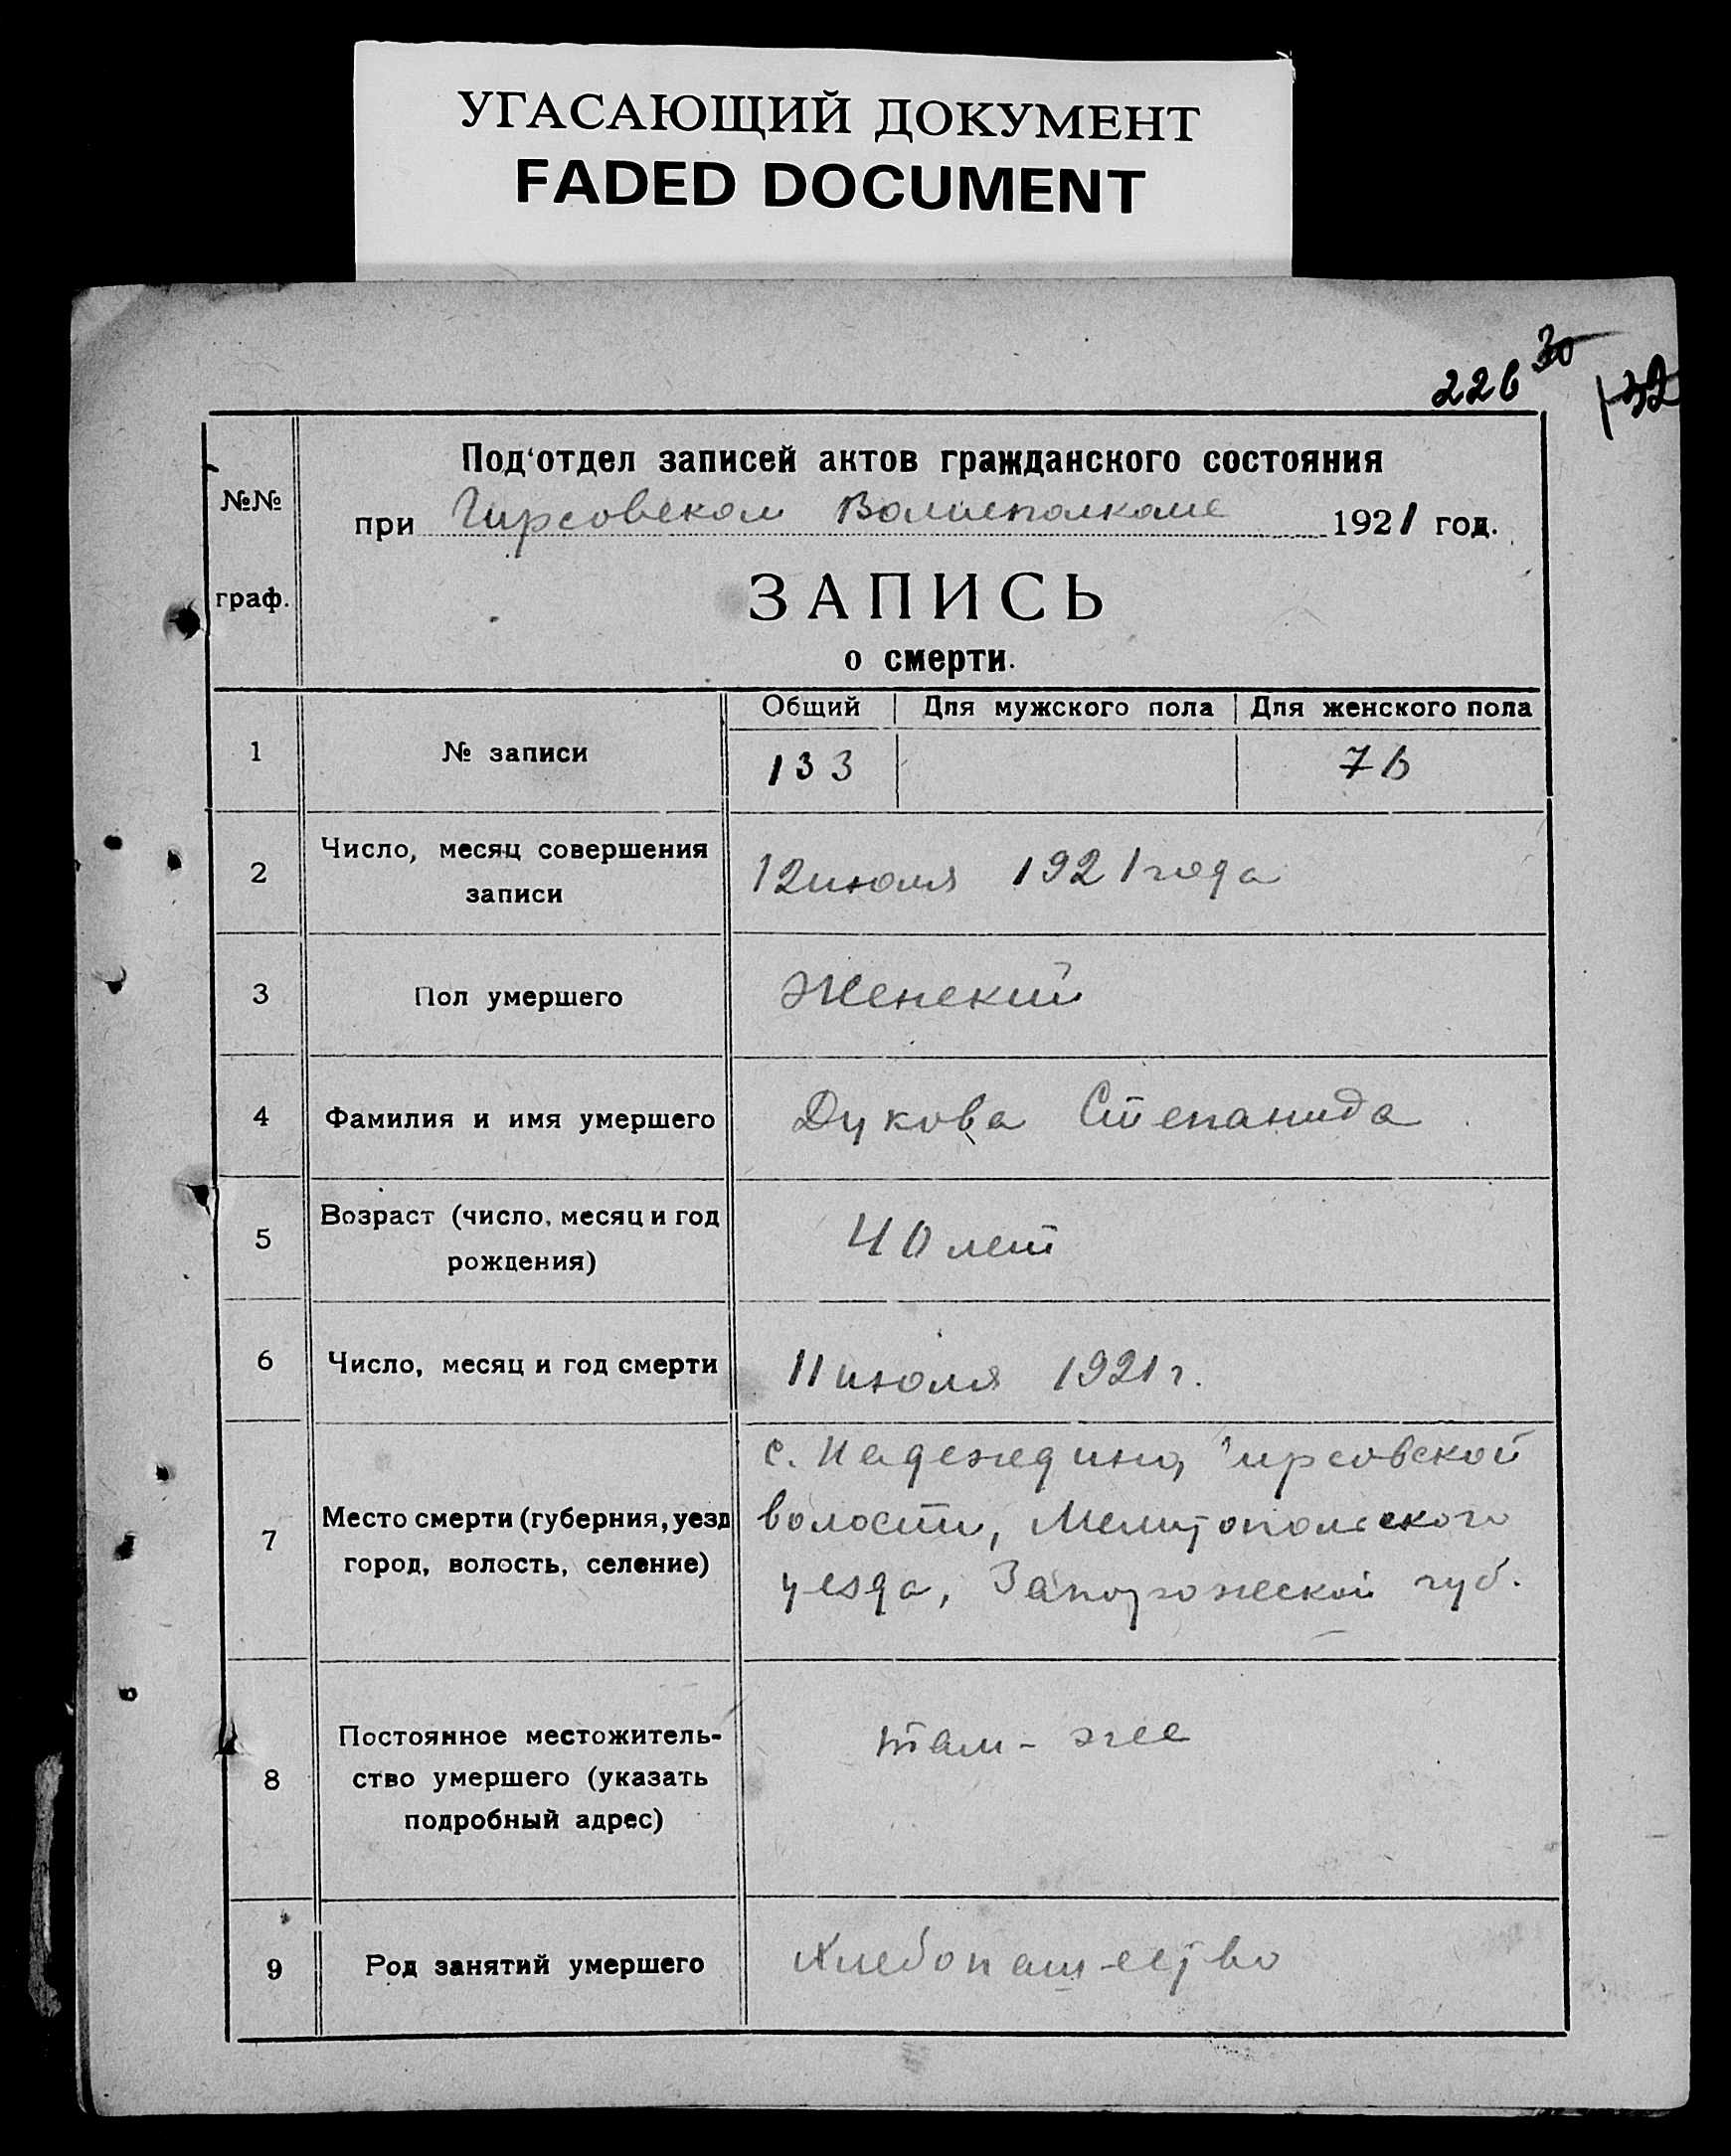 УГАСАЮЩИЙ ДОКУМЕНТ
FADED DOCUMENT
226 30
132
Под'отдел записей актов гражданского состояния
№№
при Гирсовском Волисполкоме 1921 год.
граф.
ЗАПИСЬ
о смерти.
Общий Для мужского пола Для женского пола
1 № записи 133 76
2 Число, месяц совершения
записи
12 июля 1921 года
3 Пол умершего Женский
4 Фамилия и имя умершего Дукова Степанида
5 Возраст (число, месяц и год
рождения)
40 лет
6 Число, месяц и год смерти 11 июля 1921 г.
7 Место смерти (губерния, уезд
город, волость, селение)
с. Надеждино, Гирсовской
волости, Мелитопольского
уезда, Запорожской губ.
8 Постоянное местожитель-
ство умершего (указать
подробный адрес)
там-же
9 Род занятий умершего Хлебопашество